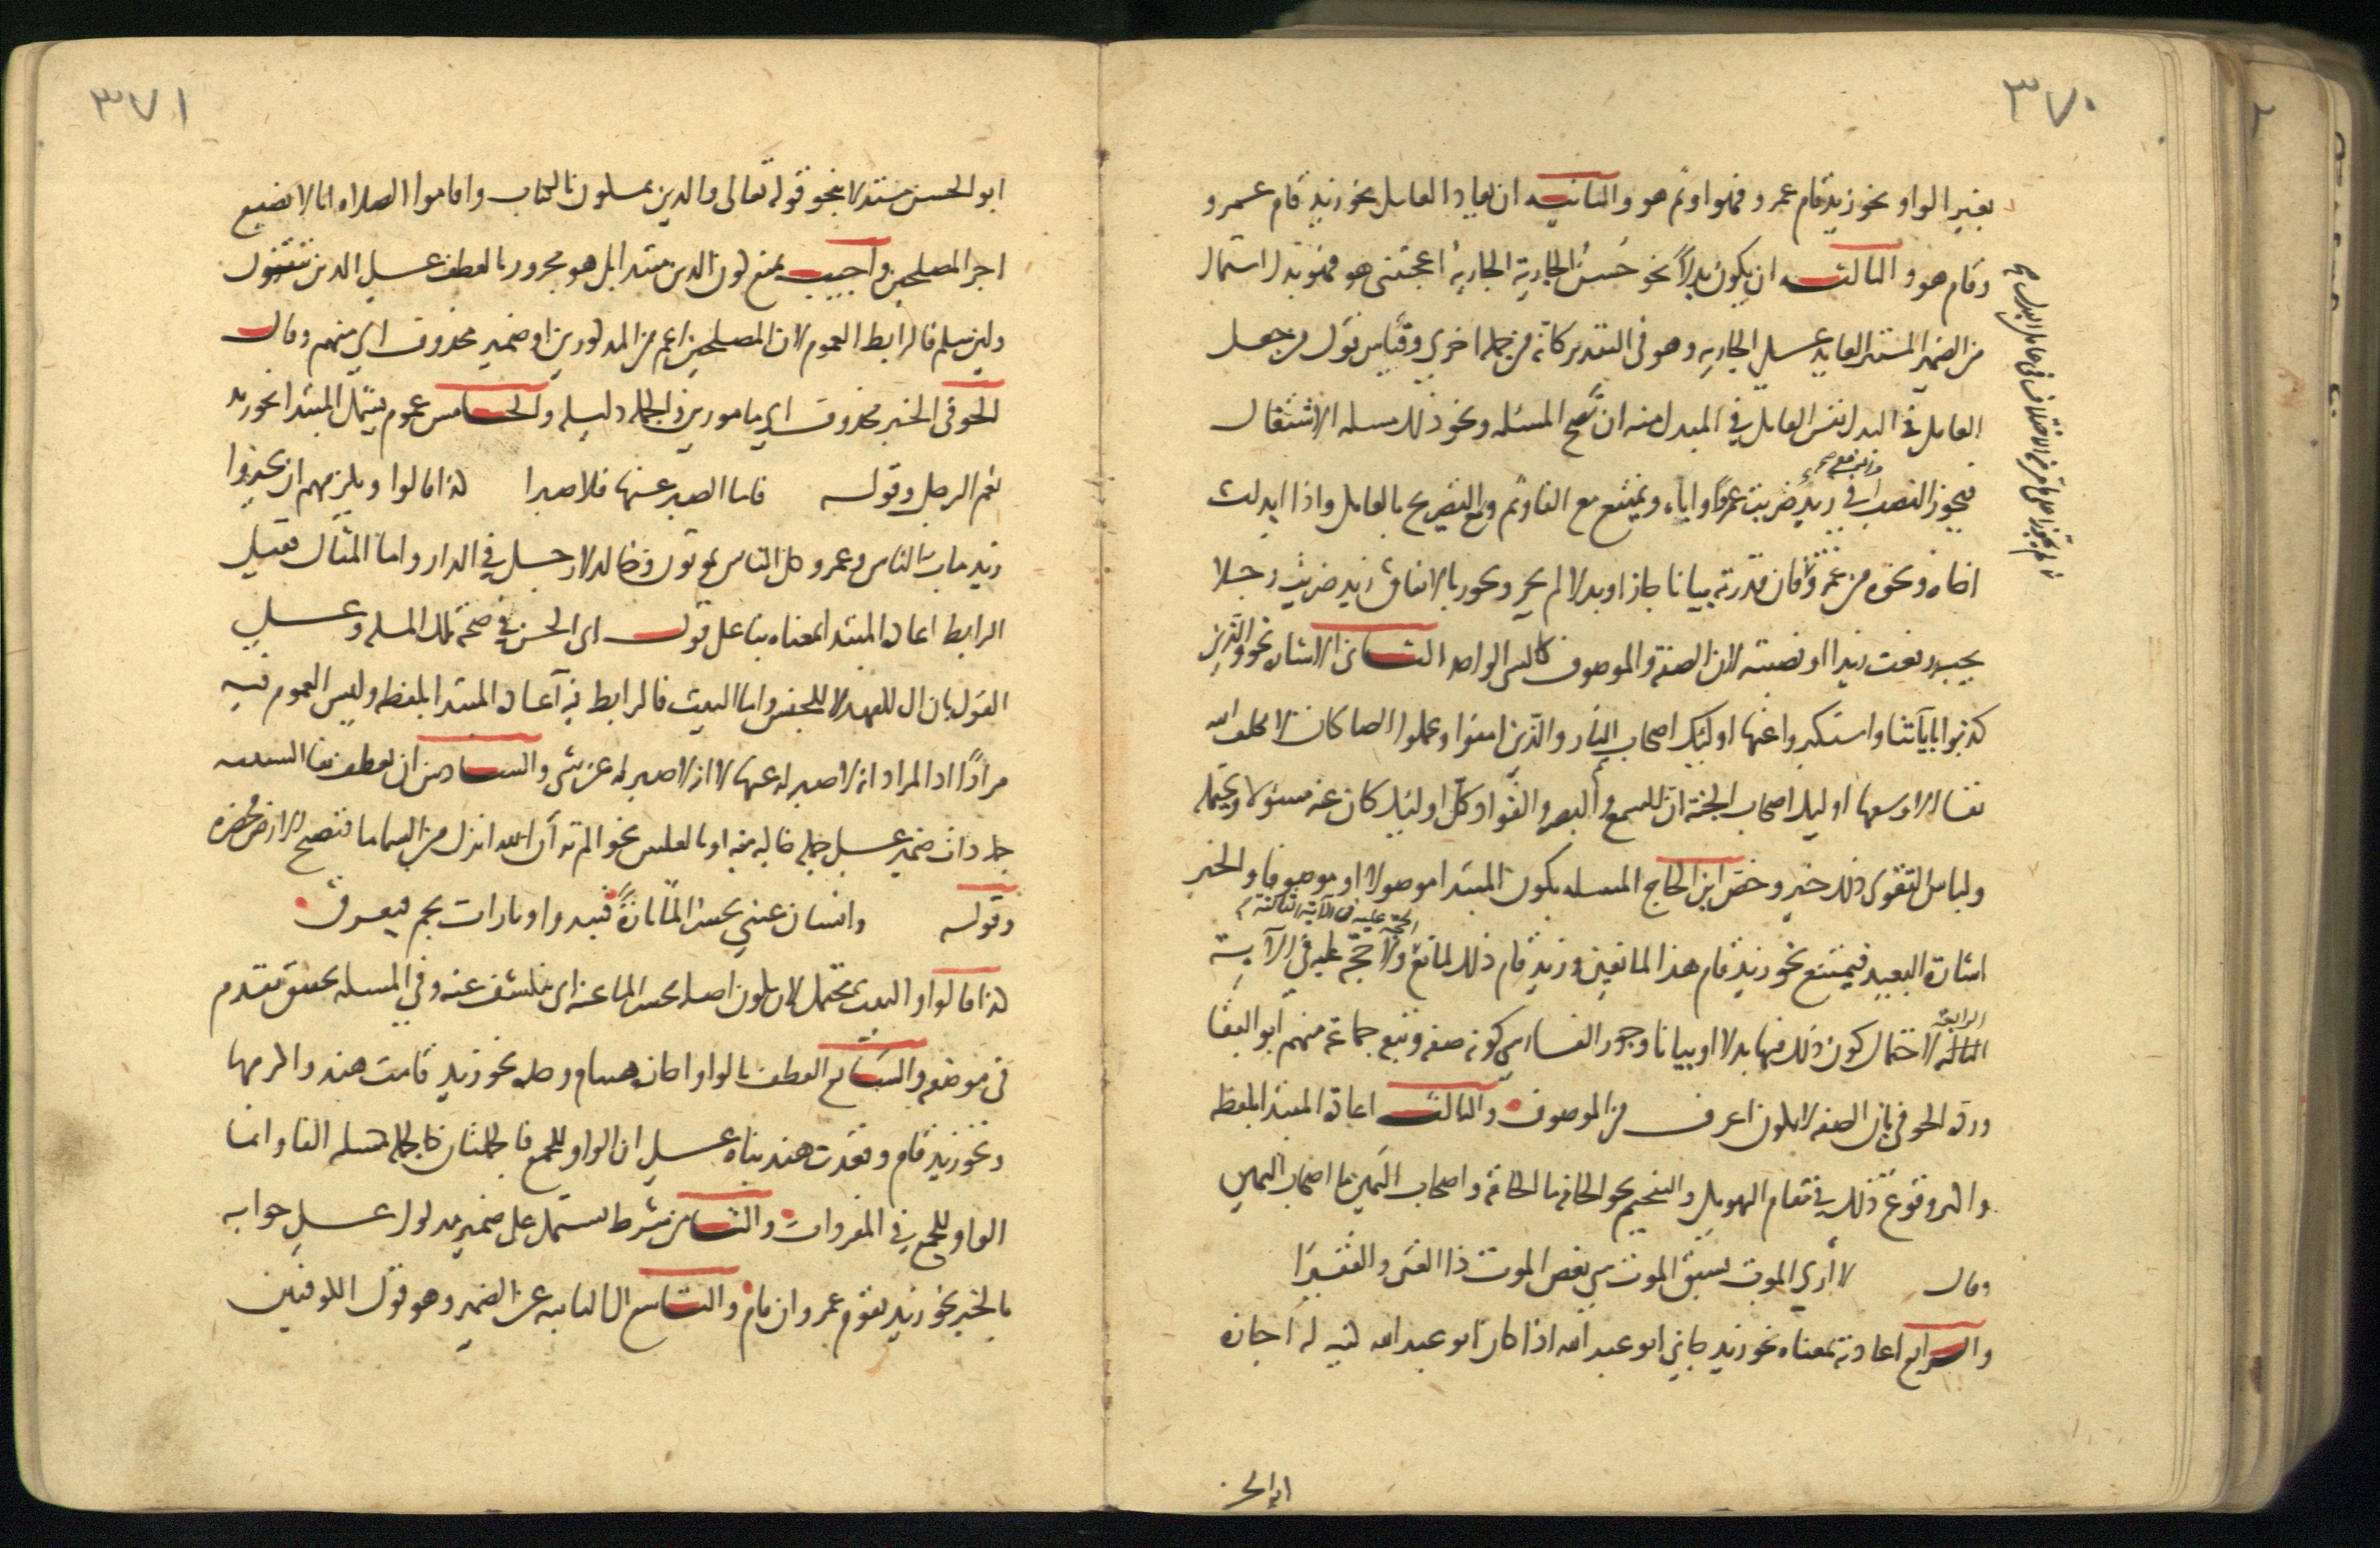 ٣٧٠
بغير الواو نحو زيد قام عمرو فهو او ثم هو والثانية ان يعاد العامل نحو زيد قام عمرو
وقام هو والثالثه ان يكون بدلاً نحو حُسنُ الجارية الجاريةُ اعجبتني هو فهو بدل اشتمال
من الضمير المستتر العايد علي الجاريه وهو في التقدير كانه من جملة اخري وقياس قول من جعل
العامل في البدل نفس العامل في المبدل منه ان تصح المسئله ونحو ذلك مسله الاشتغال
فيجوز النصب في زيد ضربت عمرًا واباه ويمتنع مع الفا وثم ومع التصريح بالعامل واذا ابدلت
اخاه ونحوه من عمرو فان قدرته بيانا جاز او بدلا لم يجز ويجوز بالاتفاق زيد ضربت رجلا
يحبه رفعت زيدا او نصبته لان الصفة والموصوف كالشي الواحد الثاني الاشاره نحو والذين
كذبوا باياتنا واستكبروا عنها اوليك اصحاب النار والذين امنوا وعملوا الصالحات لا نكلف
نفسا الا وسعها اوليك اصحاب الجنة ان السمع والبصر والفؤاد كل اوليك كان عنه مسئولا ويحتمله
ولباس التقوى ذلك خير وخص ابن الحاج المسله بكون المبتدا موصولا او موصوفا والخبر
اشارة البعيد فيمتنع نحو زيد قام هذا المانعين وزيد قام ذلك لمانع ولا حجة عليه في الآية
الحجة عليه في الآية الثالثة
الرابعة
الثالثه لاحتمال كون ذلك فيها بدلا او بيانا وجوز الفارسي كونه صفه وتبع جماعة منهم ابو البقا
ورده الحوفي بان الصفه لا تكون اعرف من الموصوف والثالث اعادة المبتدا بلفظه
واكثر وقوع ذلك في مقام التهويل والتفخيم نحو الحاقه ما الحاقه واصحاب اليمين ما اصحاب اليمين
وقال لا أري الموت يسبق الموت شي نغص الموت ذا الغنى والفقيرا
والرابع اعادته بمعناه نحو زيد جاني ابو عبد الله اذا كان ابو عبد الله كنيه له اجازه
ابو الحسن
٣٧١
ابو الحسن مستدلا بنحو قوله تعالى والذين يمسكون بالكتاب واقاموا الصلاه انا لا نضيع
اجر المصلحين واجيب بمنع كون الذين مبتدا بل هو مجرور بالعطف على الذين يتقون
ولين سلم فالرابط العموم لان المصلحين اعم من المذكورين او ضمير محذوف اي منهم وقال
الحوفي الخبر محذوف اي ماجورين والجمله دليله والخامس عموم يشمل المبتدا نحو زيد
نعم الرجل وقوله فاما الصبر عنها فلا صبرا كذا قالوا ويلزمهم ان يجيزوا
زيد مات الناس وعمرو كل الناس يموتون وخالد لا رجل في الدار واما المثال فقيل
الرابط اعاده المبتدا بمعناه بنا على قول ابي الحسن في صحة تلك المسله وعلي
القول بان ال للعهد لا للجنس واما البيت فالرابط فيه اعاده المبتدا بلفظه وليس العموم فيه
مرادًا اذ المراد انه لا صبر له عنها لا انه لا صبر له عن شي والسادس ان يعطف بفا السببيه
جمله ذات ضمير علي جمله خاليه منه او بالعكس نحو الم تر أن الله انزل من السما ما فتصبح الارض مخضره
وقوله وانسان عيني يحسر المآ تارةً فيبدوا وتارات يجم فيغرق
كذا قالوا والبيت محتمل لان يكون اصله يحسر الما عنه اي ينكشف عنه وفي المسله تحقيق تقدم
في موضعه والسابع العطف بالواو اجازه هشام وحده نحو زيد قامت هند واكرمها
ونحو زيد قام وقعدت هند بناه علي ان الواو للجمع فالجملتان كالجمله كمسله الفا وانما
الواو للجمع في المفردات والثامن شرط يشتمل على ضمير مدلول علي جوابه
بالخبر نحو زيد يقوم عمرو ان قام والتاسع ال النايبه عن الضمير وهو قول الكوفيين